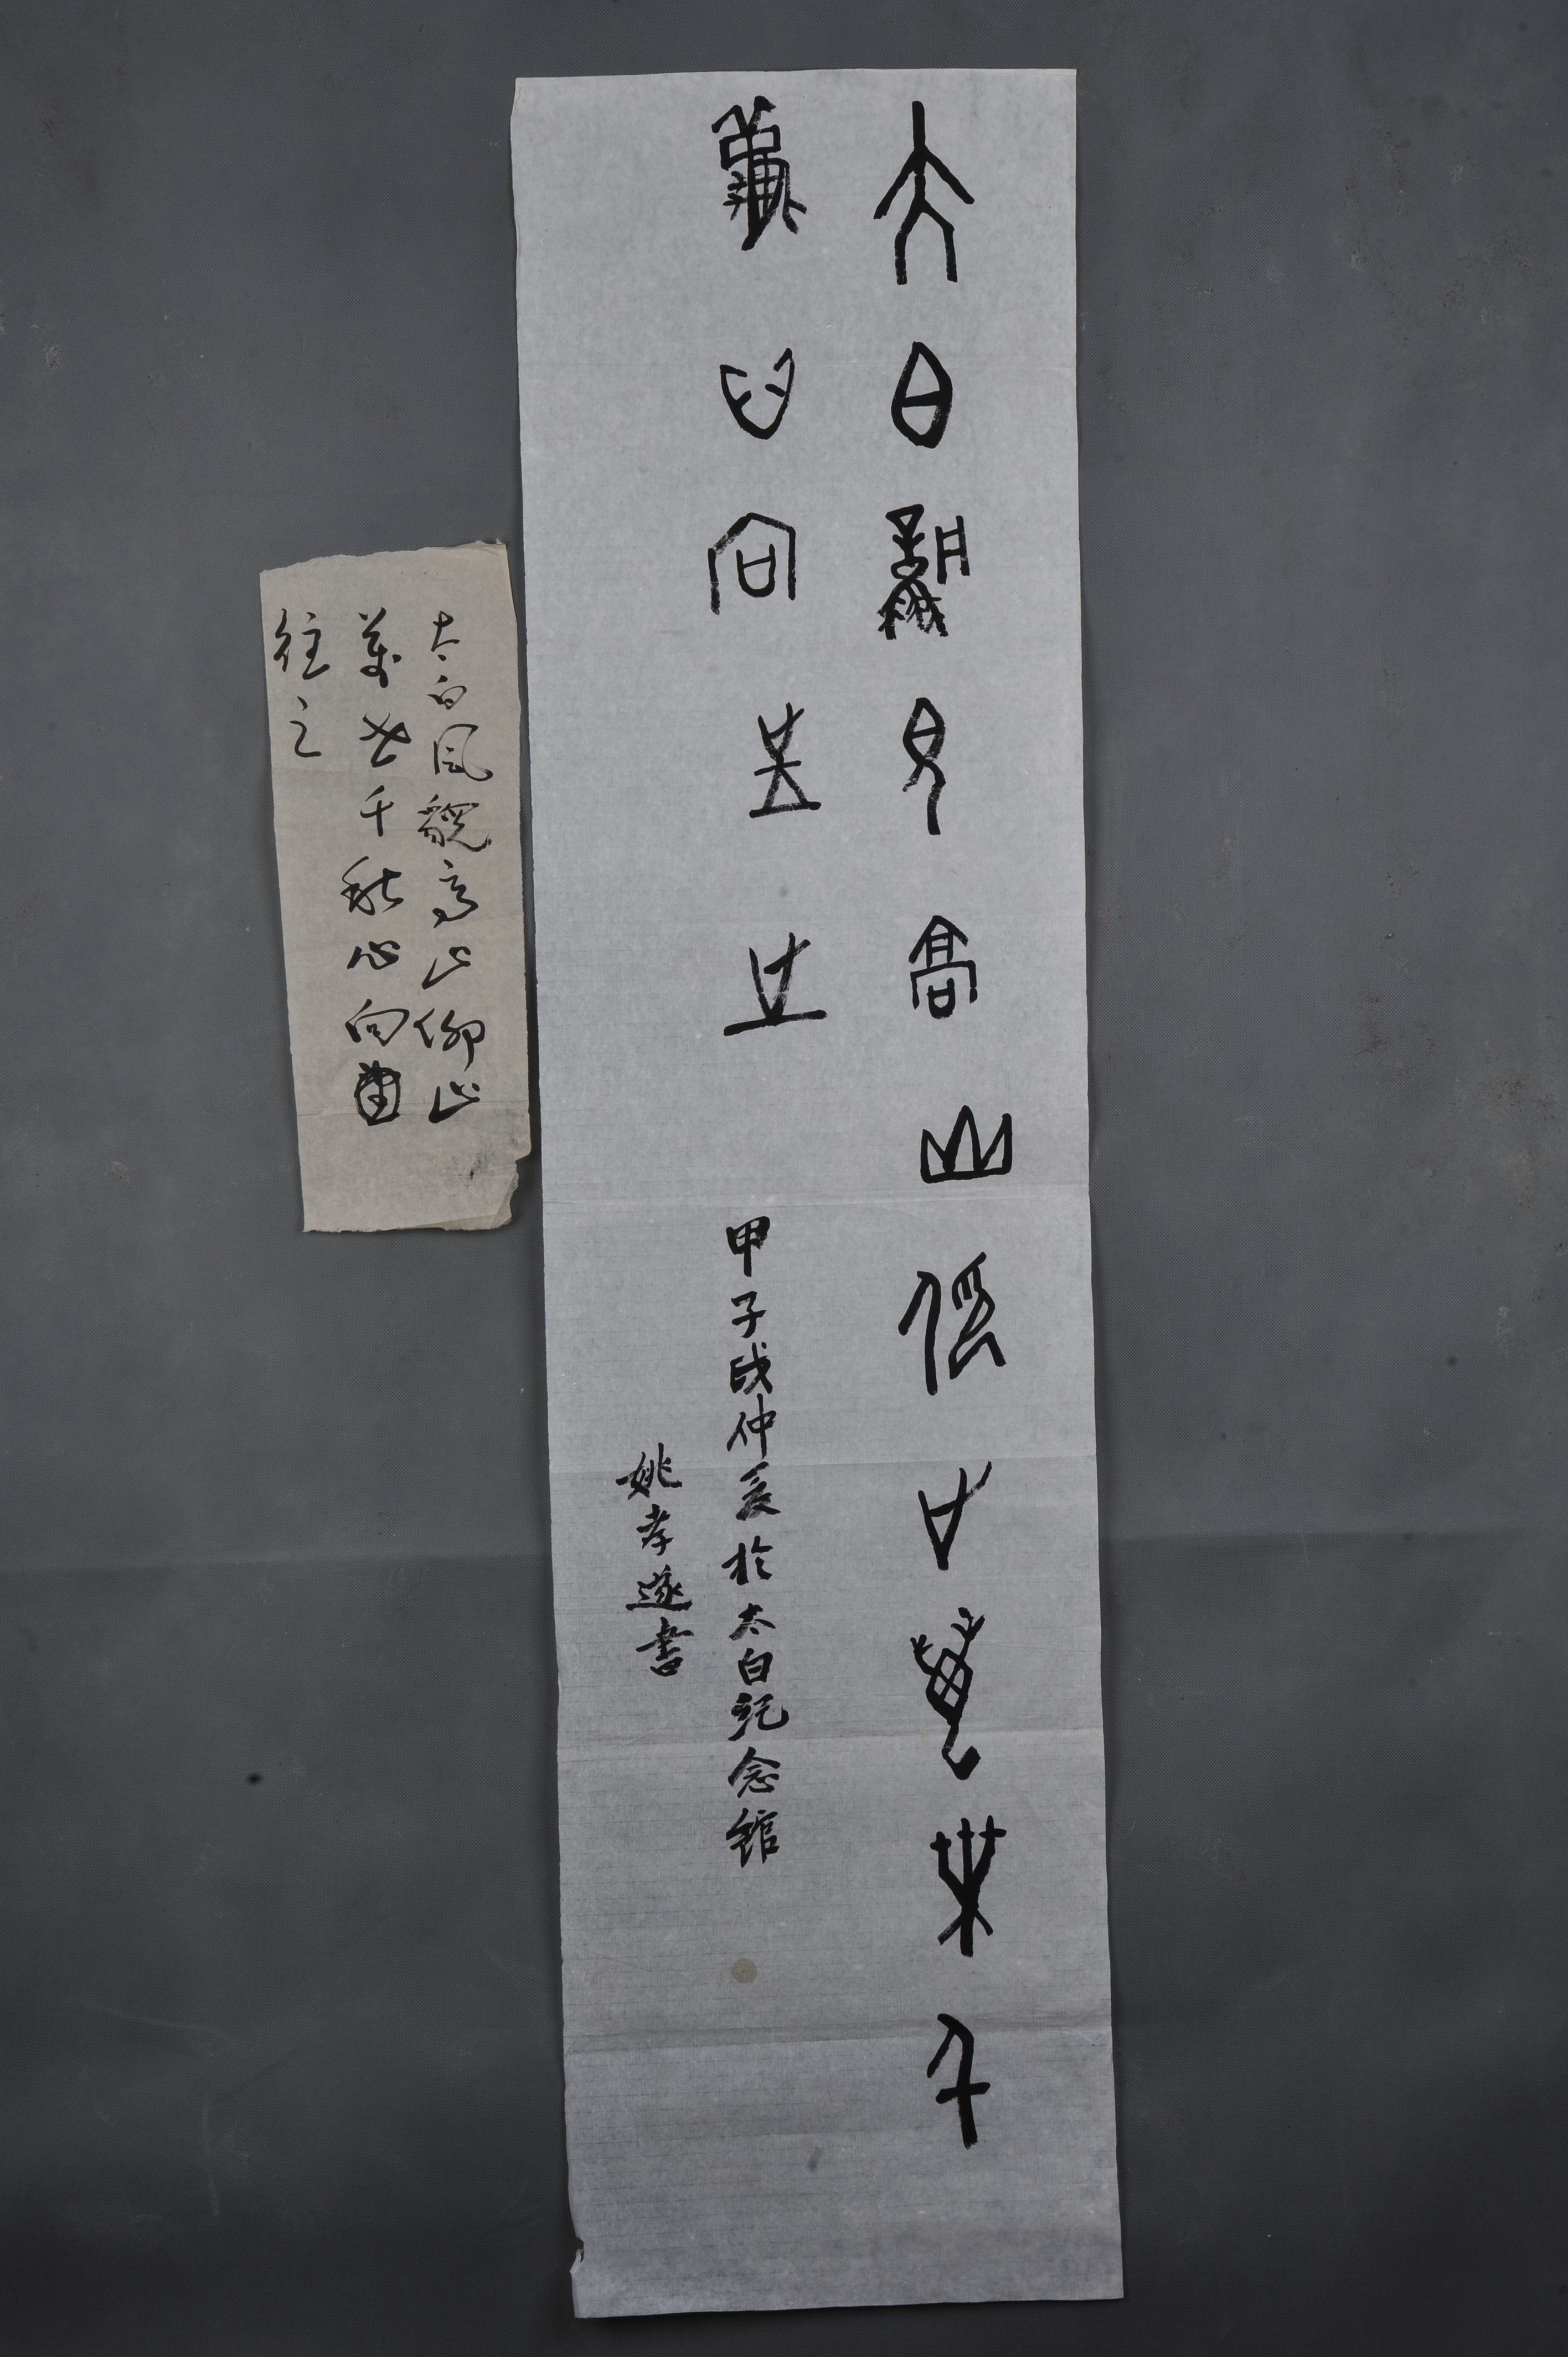 太白風貌高山仰止萬世千
秋心向往之
甲子歲仲夏於太白紀念館
姚孝遂書
太白風貌高山仰止
萬世千秋心向
往之